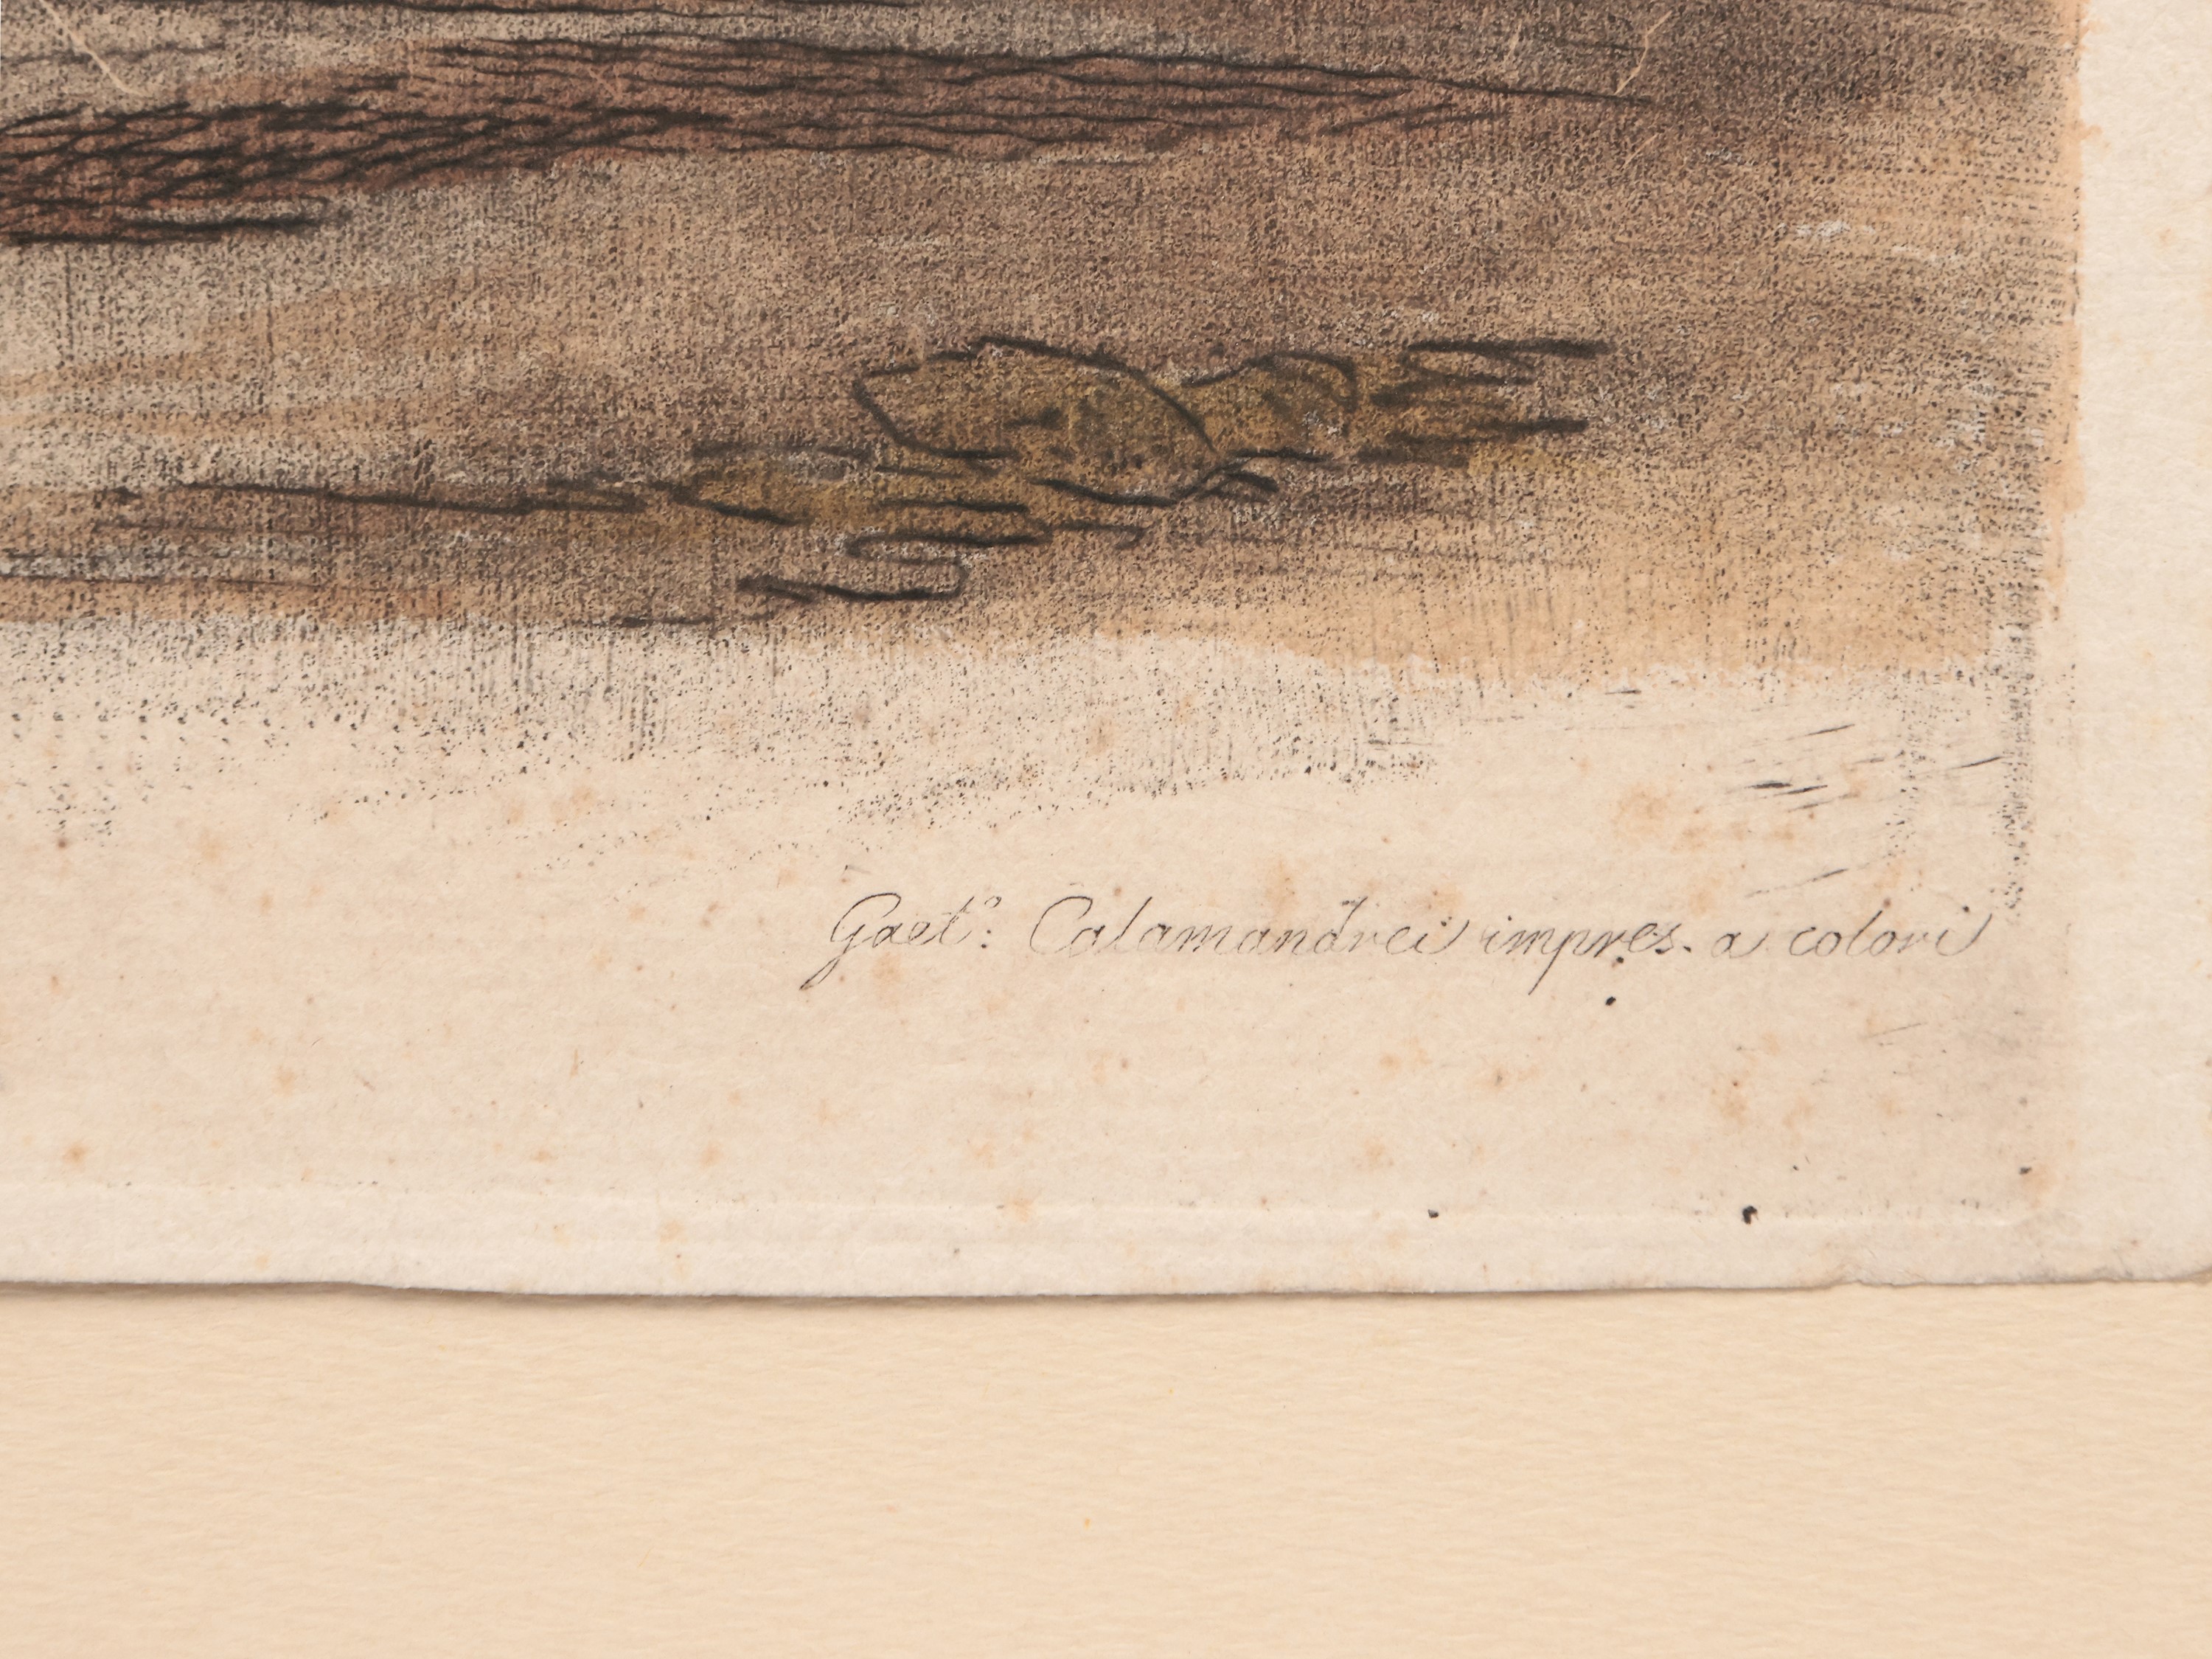 Gaet.º: Calamandrei impres. a colori